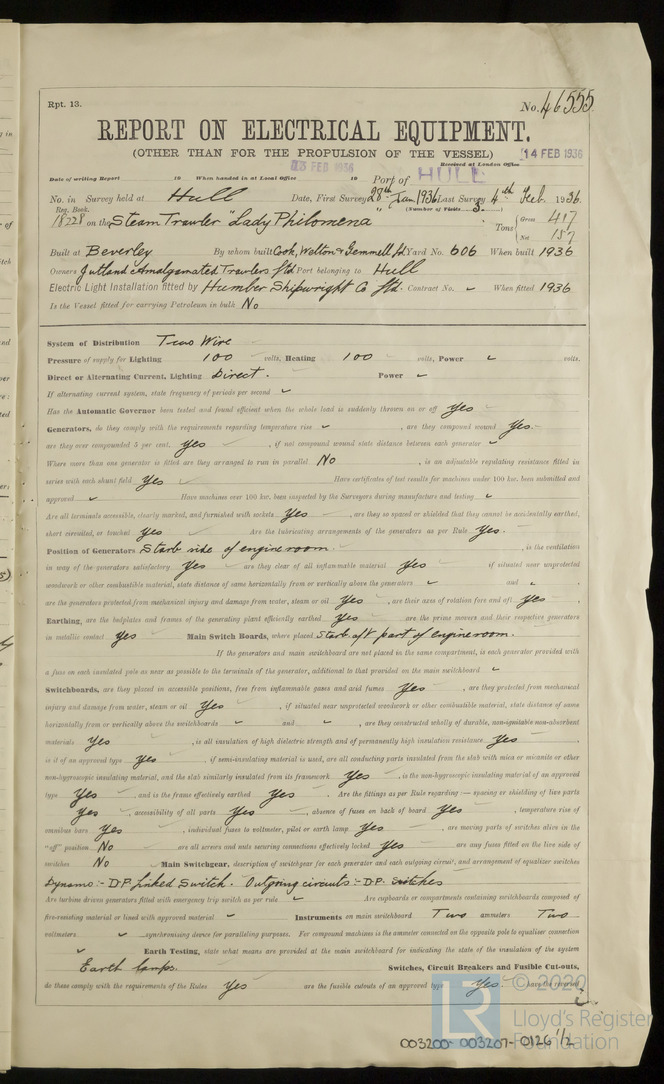 Rpt. 13.
No. 46555
REPORT ON ELECTRICAL EQUIPMENT.
(OTHER THAN FOR THE PROPULSION OF THE VESSEL)
14 FEB 1936
Received at London Office
FEB 1936
Date of writing Report 19 When handed in at Local Office 19 Port of HULL
No. in Survey held at Hull Date, First Survey 28th Jan 1936 Last Survey 4th Feb. 1936
Reg. Book. (Number of Visits 3.)
18228 on the Steam Trawler "Lady Philomena Tons { Gross 417
Net 157
Built at Beverley By whom built Cook, Welton & Gemmell Ltd Yard No. 606 When built 1936
Owners Jutland Amalgamated Trawlers Ltd Port belonging to Hull
Electric Light Installation fitted by Humber Shipwright Co Ltd. Contract No. When fitted 1936
Is the Vessel fitted for carrying Petroleum in bulk No
System of Distribution Two Wire
Pressure of supply for Lighting 100 volts, Heating 100 volts, Power volts.
Direct or Alternating Current, Lighting Direct. Power
If alternating current system, state frequency of periods per second
Has the Automatic Governor been tested and found efficient when the whole load is suddenly thrown on or off Yes
Generators, do they comply with the requirements regarding temperature rise , are they compound wound Yes.
are they over compounded 5 per cent. Yes , if not compound wound state distance between each generator
Where more than one generator is fitted are they arranged to run in parallel No , is an adjustable regulating resistance fitted in
series with each shunt field Yes Have certificates of test results for machines under 100 kw. been submitted and
approved Have machines over 100 kw. been inspected by the Surveyors during manufacture and testing
Are all terminals accessible, clearly marked, and furnished with sockets Yes , are they so spaced or shielded that they cannot be accidentally earthed,
short circuited, or touched Yes Are the lubricating arrangements of the generators as per Rule Yes.
Position of Generators Starb side of engine room. , is the ventilation
in way of the generators satisfactory Yes are they clear of all inflammable material Yes if situated near unprotected
woodwork or other combustible material, state distance of same horizontally from or vertically above the generators and
are the generators protected from mechanical injury and damage from water, steam or oil Yes , are their axes of rotation fore and aft Yes
Earthing, are the bedplates and frames of the generating plant efficiently earthed Yes are the prime movers and their respective generators
in metallic contact Yes Main Switch Boards, where placed Starb. aft part of engine room.
If the generators and main switchboard are not placed in the same compartment, is each generator provided with
a fuse on each insulated pole as near as possible to the terminals of the generator, additional to that provided on the main switchboard
Switchboards, are they placed in accessible positions, free from inflammable gases and acid fumes Yes , are they protected from mechanical
injury and damage from water, steam or oil Yes , if situated near unprotected woodwork or other combustible material, state distance of same
horizontally from or vertically above the switchboards and , are they constructed wholly of durable, non-ignitable non-absorbent
materials Yes , is all insulation of high dielectric strength and of permanently high insulation resistance Yes
is it of an approved type Yes , if semi-insulating material is used, are all conducting parts insulated from the slab with mica or micanite or other
non-hygroscopic insulating material, and the slab similarly insulated from its framework Yes , is the non-hygroscopic insulating material of an approved
type Yes , and is the frame effectively earthed Yes Are the fittings as per Rule regarding:— spacing or shielding of live parts
Yes , accessibility of all parts Yes , absence of fuses on back of board Yes , temperature rise of
omnibus bars Yes , individual fuses to voltmeter, pilot or earth lamp Yes , are moving parts of switches alive in the
"off" position No are all screws and nuts securing connections effectively locked Yes are any fuses fitted on the live side of
switches No Main Switchgear, description of switchgear for each generator and each outgoing circuit, and arrangement of equalizer switches
Dynamo:- D.P. Linked Switch. Outgoing circuits:- D.P. switches
Are turbine driven generators fitted with emergency trip switch as per rule Are cupboards or compartments containing switchboards composed of
fire-resisting material or lined with approved material Instruments on main switchboard Two ammeters Two
voltmeters synchronising device for paralleling purposes. For compound machines is the ammeter connected on the opposite pole to equaliser connection
Earth Testing, state what means are provided at the main switchboard for indicating the state of the insulation of the system
Earth lamps. Switches, Circuit Breakers and Fusible Cut-outs,
do these comply with the requirements of the Rules Yes are the fusible cutouts of an approved type Yes. have the reversed
© 2020
Lloyd's Register
Foundation
003200-003207-0126 1/2